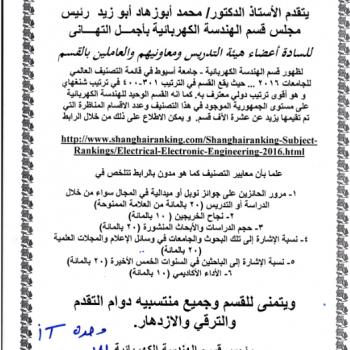 يتقدم الأستاذ الدكتور/ محمد أبوزهاد أبو زيد رئيس
مجلس قسم الهندسة الكهربائية بأجمل التهانى
للسادة أعضاء هيئة التدريس ومعاونيهم والعاملين بالقسم
لظهور قسم الهندسة الكهربائية - جامعة أسيوط في قائمة التصنيف العالمي
للجامعات ٢٠١٦ ... حيث يقع القسم في الترتيب ٣٠١-٤٠٠ في ترتيب شنغهاي
و هو أقوى ترتيب دولي معترف به. كما انه القسم الوحيد للهندسة الكهربائية
على مستوى الجمهورية الموجود في هذا التصنيف وعدد الاقسام المناظرة التي
تم تقيمها يزيد عن عشرة الأف قسم. و يمكن الاطلاع على ذلك من خلال الرابط
http://www.shanghairanking.com/Shanghairanking-Subject-
Rankings/Electrical-Electronic-Engineering-2016.html
علما بأن معايير التصنيف كما هو مدون بالرابط تتلخص في
١- مرور الحائزين على جوائز نوبل أو ميدالية في المجال سواء من خلال
الدراسة أو التدريس (٢٠ بالمائة من العلامة الممنوحة)
٢- نجاح الخريجين (١٠ بالمائة)
٣- حجم الدراسات والأبحاث المنشورة (٢٠ بالمائة)
٤- نسبة الإشارة إلى تلك البحوث والجامعات في وسائل الإعلام والمجلات العلمية
(٢٠ بالمائة)
٥- نسبة الإشارة إلى الباحثين في السنوات الخمس الأخيرة (٢٠ بالمائة)
٦- الأداء الأكاديمي (١٠ بالمائة)
ويتمنى للقسم وجميع منتسبيه دوام التقدم
والترقي والازدهار.
وحدة IT